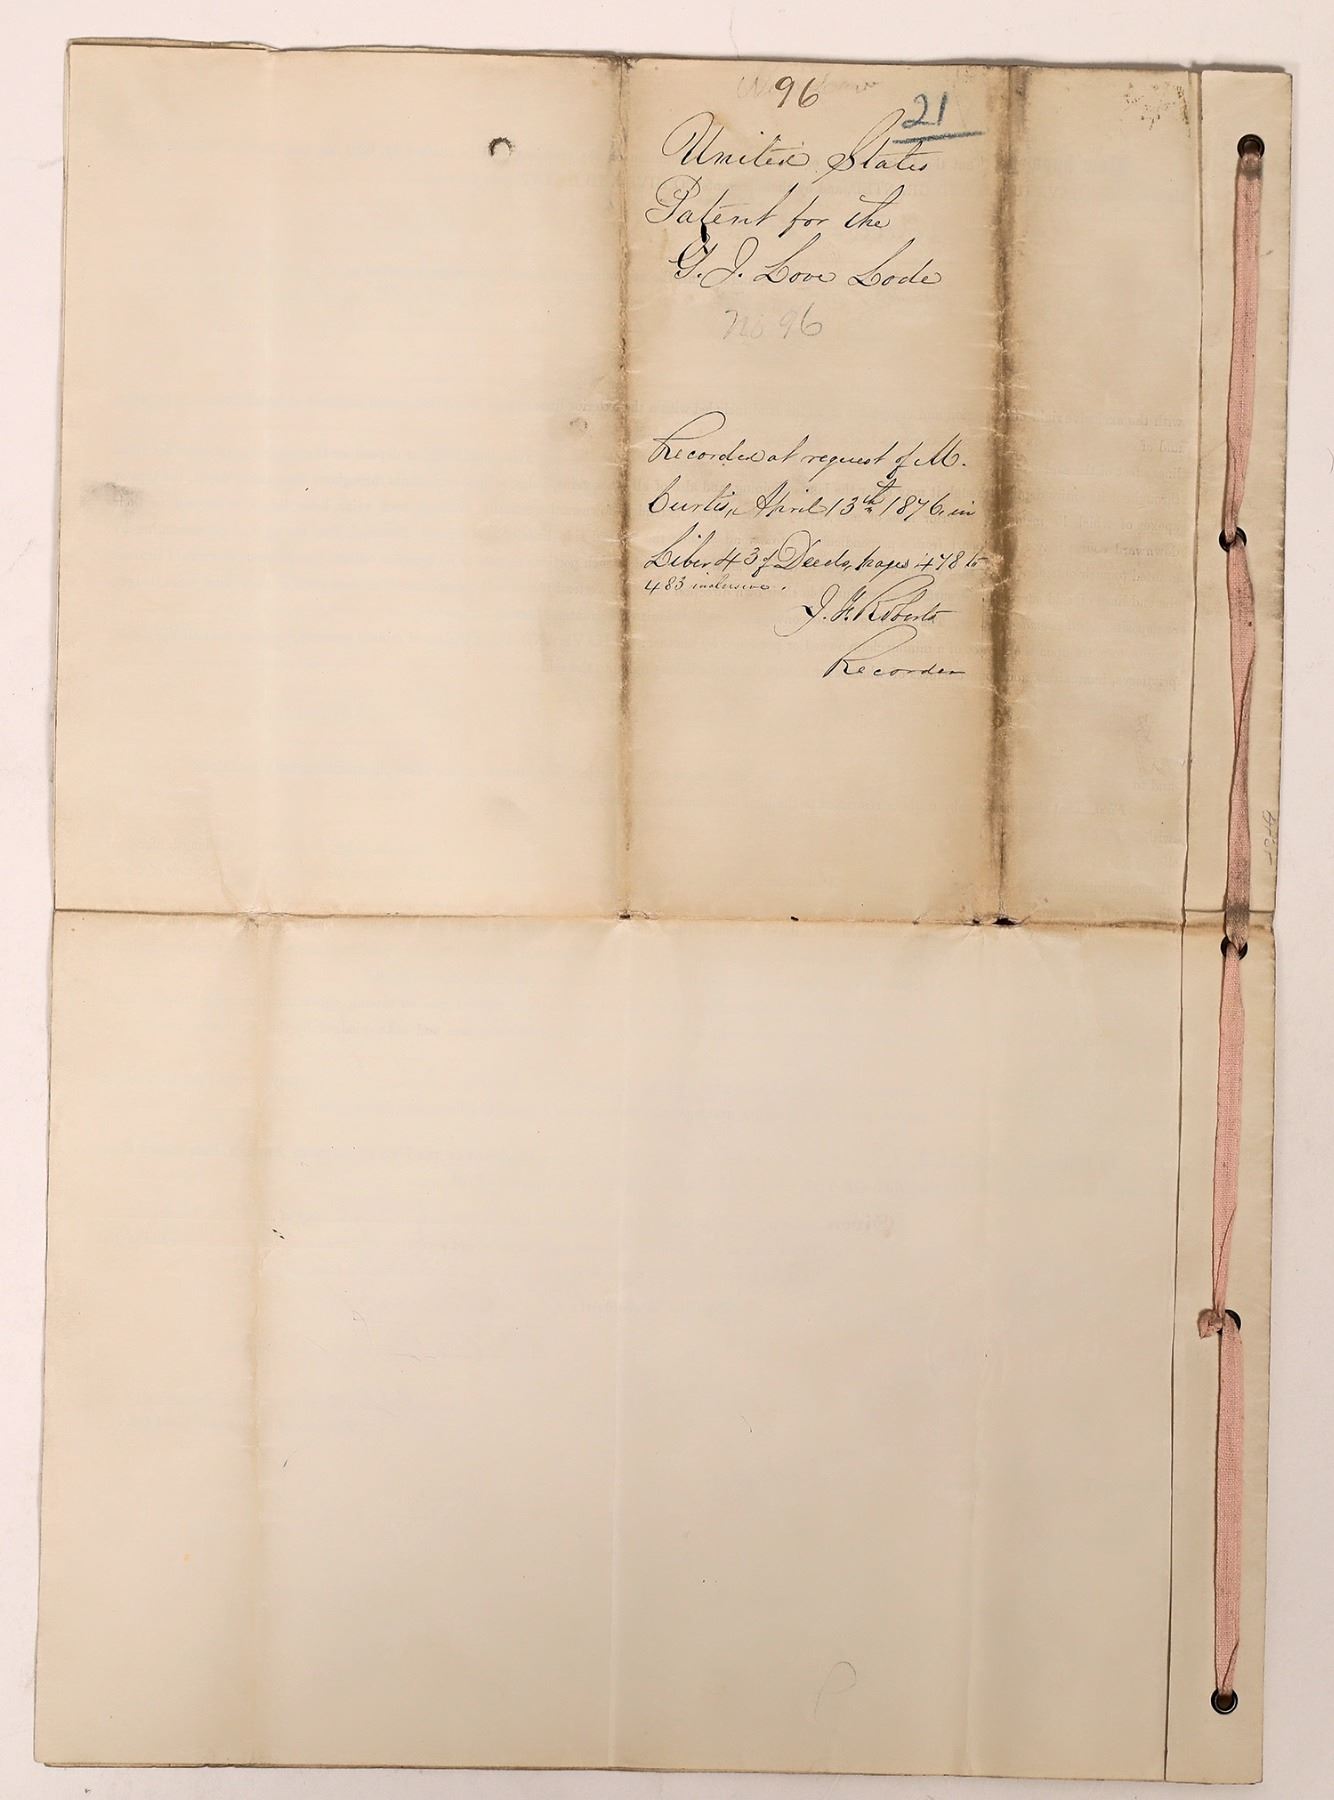 96
21
United States
Patent for the
G. J. Love Lode
No 96
Recorded at request of M.
Curtis, April 13th 1876, in
Liber 43 of Deeds, pages 478 to
483 inclusive.
J. F. Roberts
Recorder